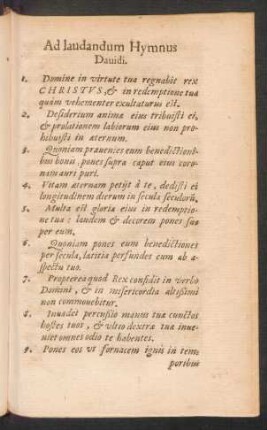 Ad laudandum Hymnus
Dauidi.
1. Domine in virtute tua regnabit rex
CHRISTVS, & in redemptione tua
quàm vehementer exultaturus est.
2. Desiderium animæ eius tribuisti ei,
& prolationem labiorum eius non pro-
hibuisti in æternum.
3. Quoniam præuenies eum benedictioni-
bus bonis, pones supra caput eius coro-
nam auri puri.
4. Vitam æternam petijt à te, dedisti ei
longitudinem dierum in secula seculorũ.
5. Multa est gloria eius in redemptio-
ne tua: laudem & decorem pones su-
per eum.
6. Quoniam pones eum benedictiones
per secula, lætitia perfundes eum ab a-
spectu tuo.
7. Propterea quod Rex confidit in verbo
Domini, & in misericordia altissimi
non commouebitur.
8. Inuadet percussio manus tuæ cunctos
hostes tuos, & vltio dextræ tuæ inue-
niet omnes odio te habentes.
9. Pones eos vt fornacem ignis in tem-
poribus